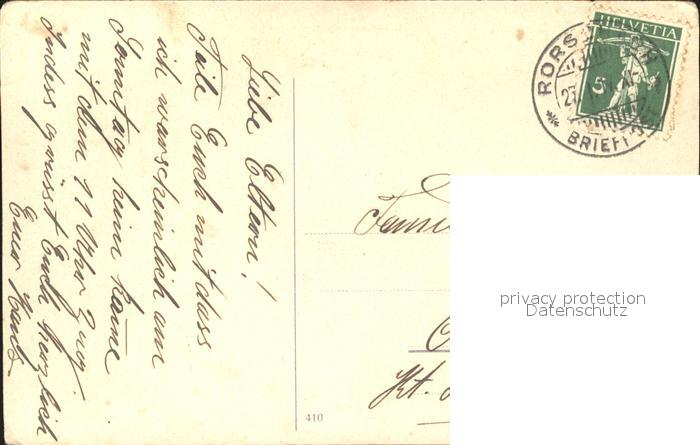 Liebe Eltern!
Teile Euch mit dass
ich warscheinlich am
Sonntag heim kome
mit dem 11 Uhr Zug.
Indess grüsst Euch herzlich
Euer
HELVETIA
5
RORS
27
BRIEF
Kt.
410
privacy protection
Datenschutz